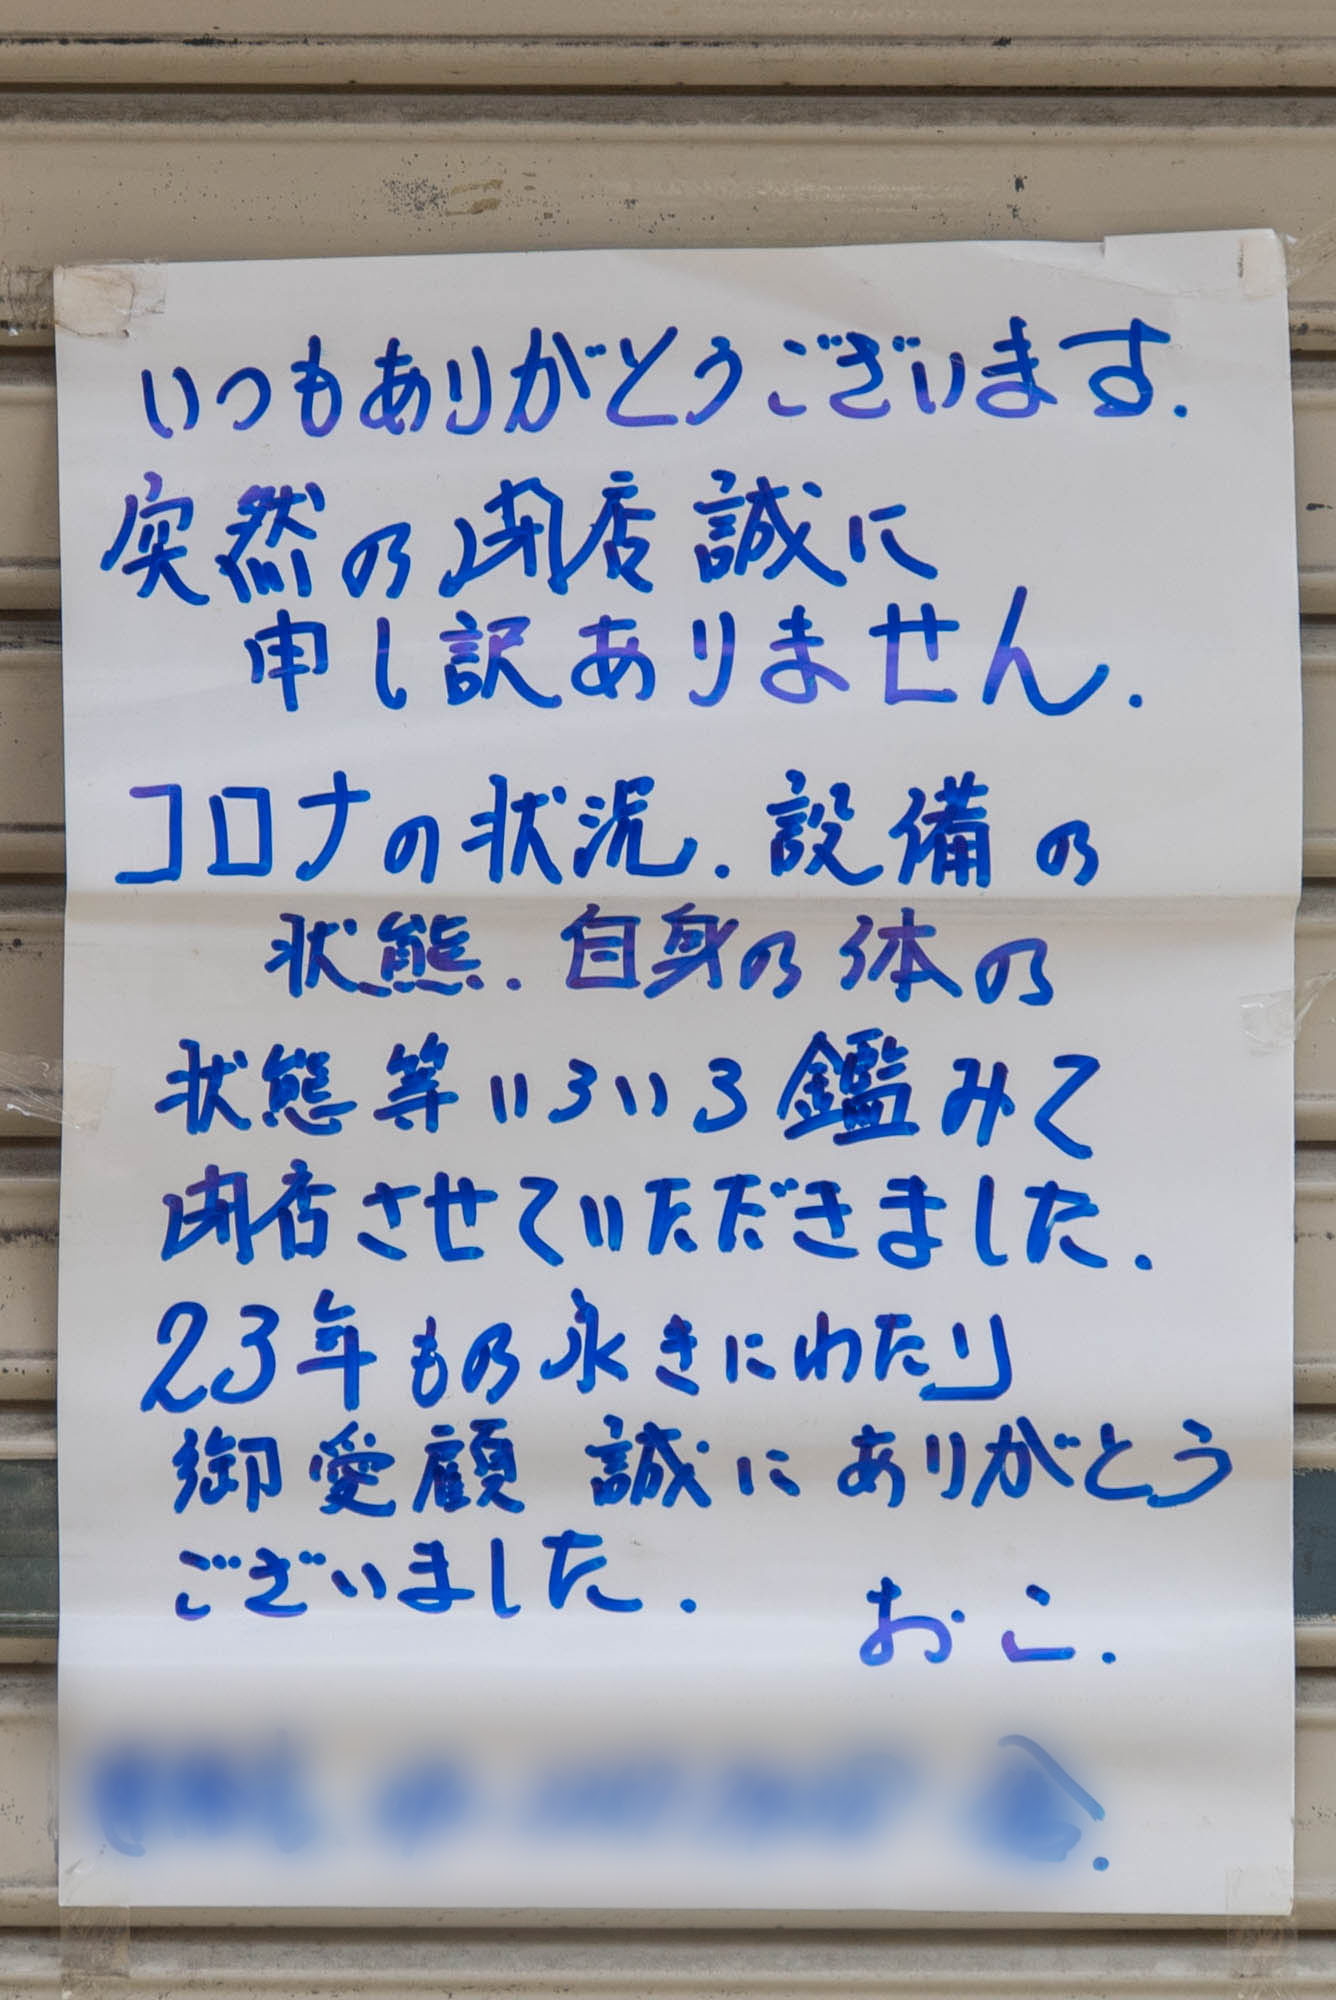 いつもありがとうございます.
突然の閉店誠に
申し訳ありません.
コロナの状況.設備の
状態.自身の体の
状態等いろいろ鑑みて
閉店させていただきました.
23年もの永きにわたり
御愛顧 誠にありがとう
ございました.
おこ.